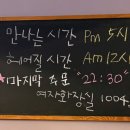 만나는 시간 Pm 5시
헤어질 시간 Am 12시
★마지막 주문 "22:30"
여자화장실 1004